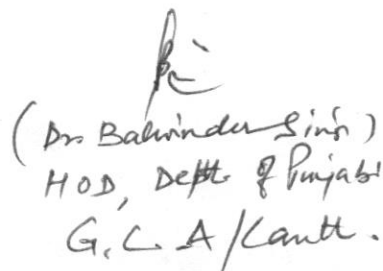 (Dr. Balwinder Singh)
HOD, Deptt. of Punjabi
G.C.A/Cantt.